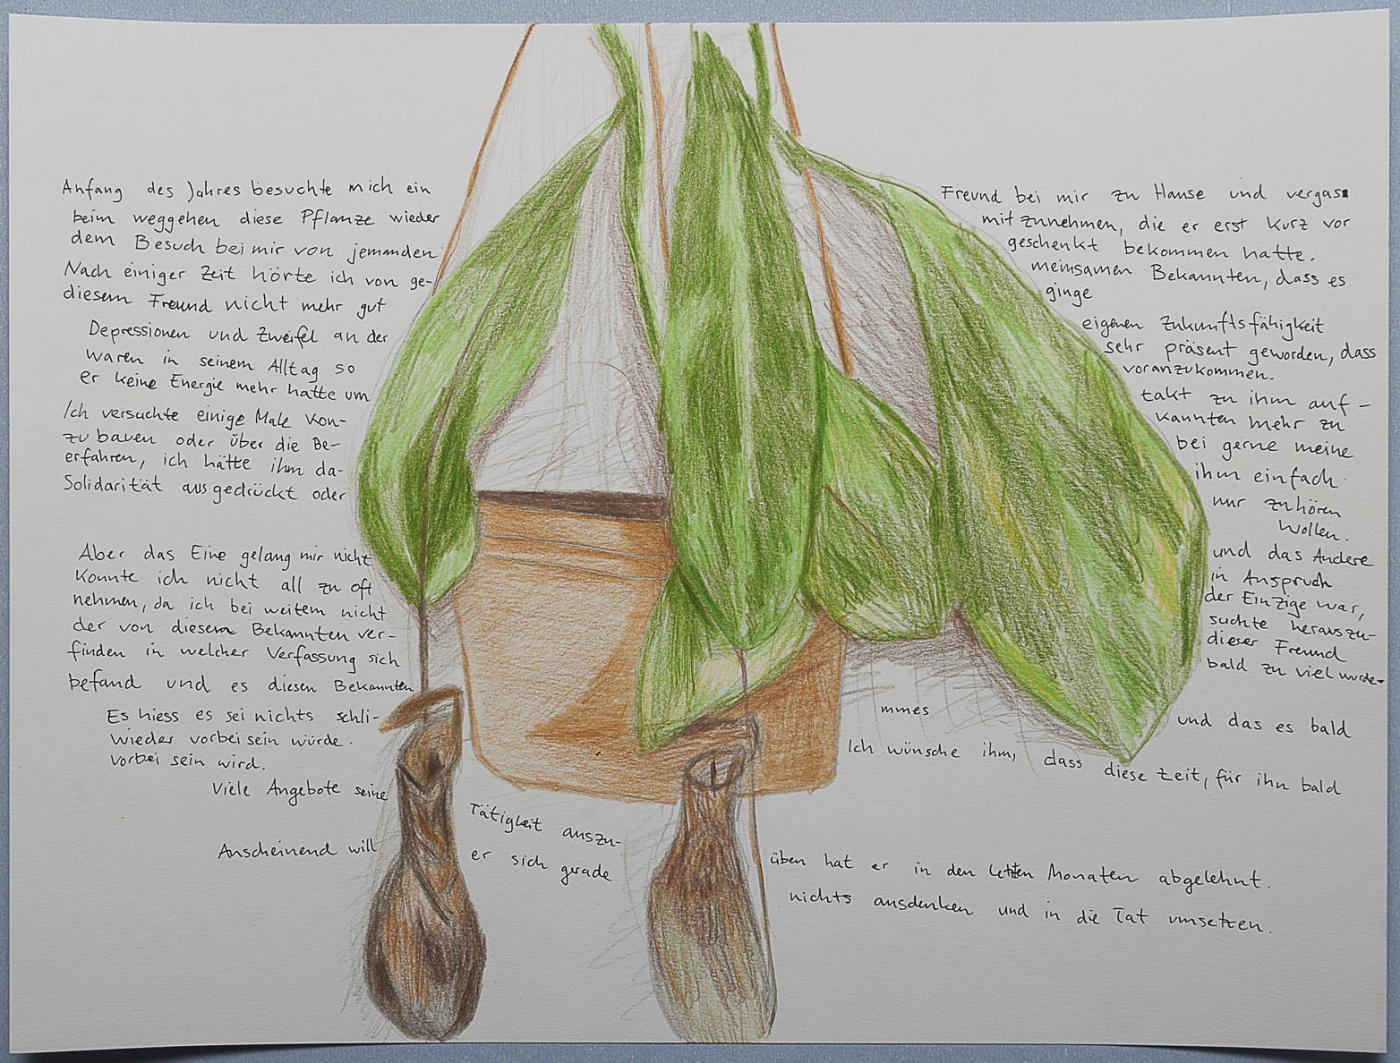 Anfang des Jahres besuchte mich ein Freund bei mir zu Hause und vergass
beim weggehen diese Pflanze wieder mitzunehmen, die er erst kurz vor
dem Besuch bei mir von jemanden geschenkt bekommen hatte.
Nach einiger Zeit hörte ich von ge- meinsamen Bekannten, dass es
diesem Freund nicht mehr gut ginge
Depressionen und Zweifel an der eigenen Zukunftsfähigkeit
waren in seinem Alltag so sehr präsent geworden, dass
er keine Energie mehr hatte um voranzukommen.
Ich versuchte einige Male Kon- takt zu ihm auf-
zubauen oder über die Be- kannten mehr zu
erfahren, ich hätte ihm da- bei gerne meine
Solidarität ausgedrückt oder ihm einfach
nur zuhören
wollen.
Aber das Eine gelang mir nicht und das Andere
konnte ich nicht all zu oft in Anspruch
nehmen, da ich bei weitem nicht der Einzige war,
der von diesem Bekannten ver- suchte herauszu-
finden in welcher Verfassung sich dieser Freund
befand und es diesen Bekannten bald zu viel wurde.
Es hiess es sei nichts schli- mmes und das es bald
wieder vorbei sein würde. Ich wünsche ihm, dass diese Zeit, für ihn bald
vorbei sein wird.
Viele Angebote seine Tätigkeit auszu- üben hat er in den letzten Monaten abgelehnt.
Anscheinend will er sich gerade nichts ausdenken und in die Tat umsetzen.